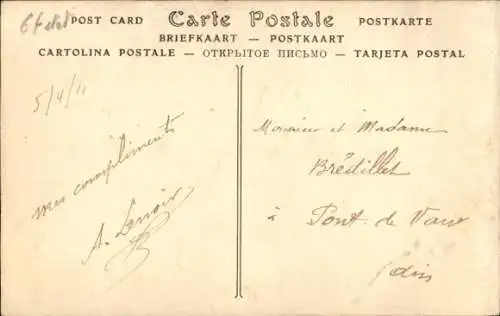 POST CARD Carte Postale POSTKARTE
BRIEFKAART — POSTKAART
CARTOLINA POSTALE — ОТКРЫТОЕ ПИСЬМО — TARJETA POSTAL
5/4/11
mes compliments
A. Lenoir
Monsieur et Madame
Brédillet
à Pont de Vaux